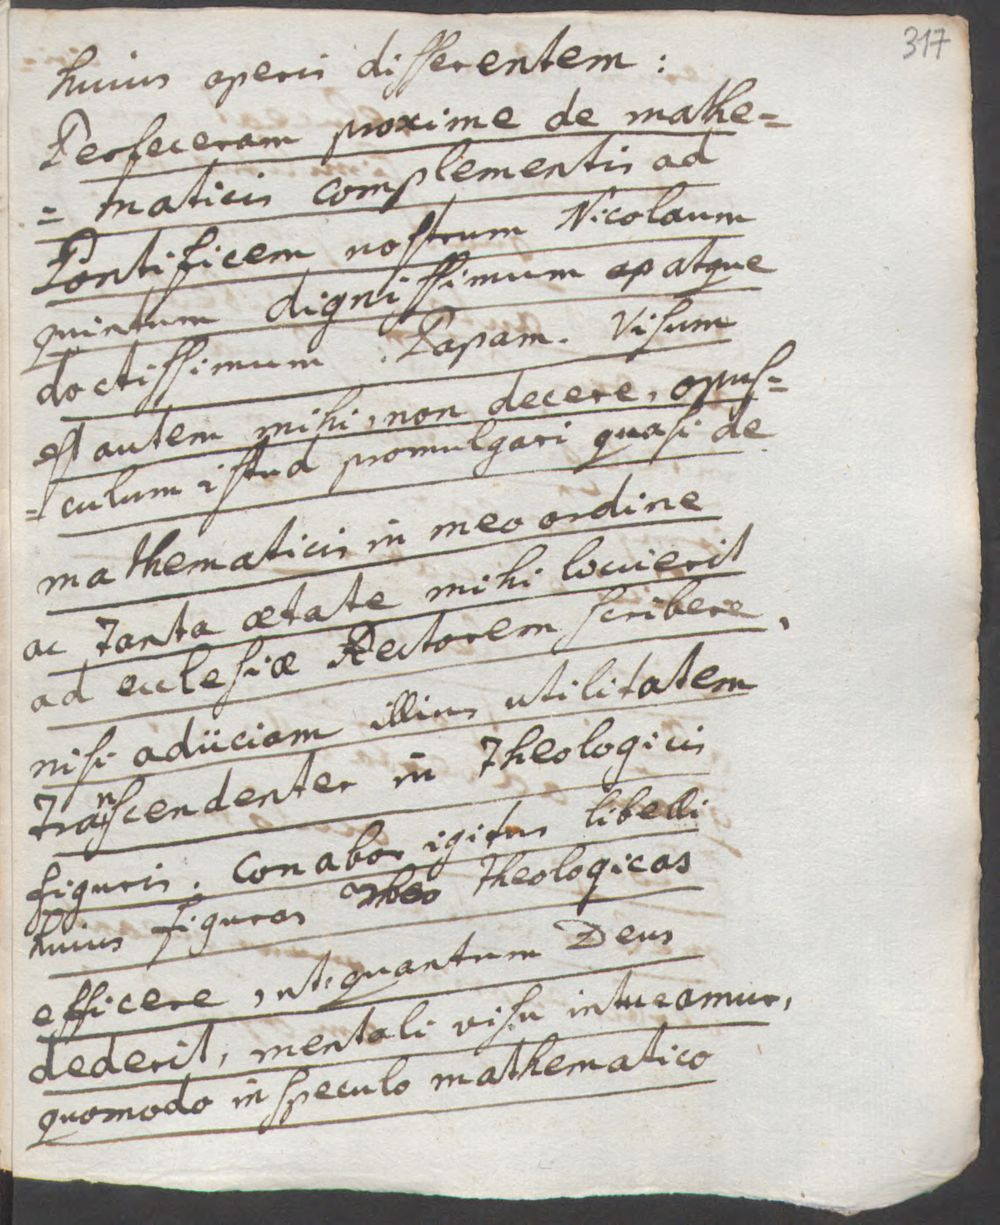 317
huius operis differentem:
Perfeceram proxime de mathe=
= maticis complementis ad
Pontificem nostrum Nicolaum
quintum dignissimum apatque
doctissimum Papam. Visum
est autem mihi, non decere, opus=
= culum istud promulgari quasi de
mathematicis in meo ordine
ac tanta ætate mihi locuierit
ad ecclesiæ Rectorem scribere,
nisi adiiciam illius utilitatem
transcendenter in theologicis
figuris. Conabor igitur libelli
huius figuras Theo theologicas
efficere, ut, quantum Deus
dederit, mentali visu intueamur,
quomodo in speculo mathematico